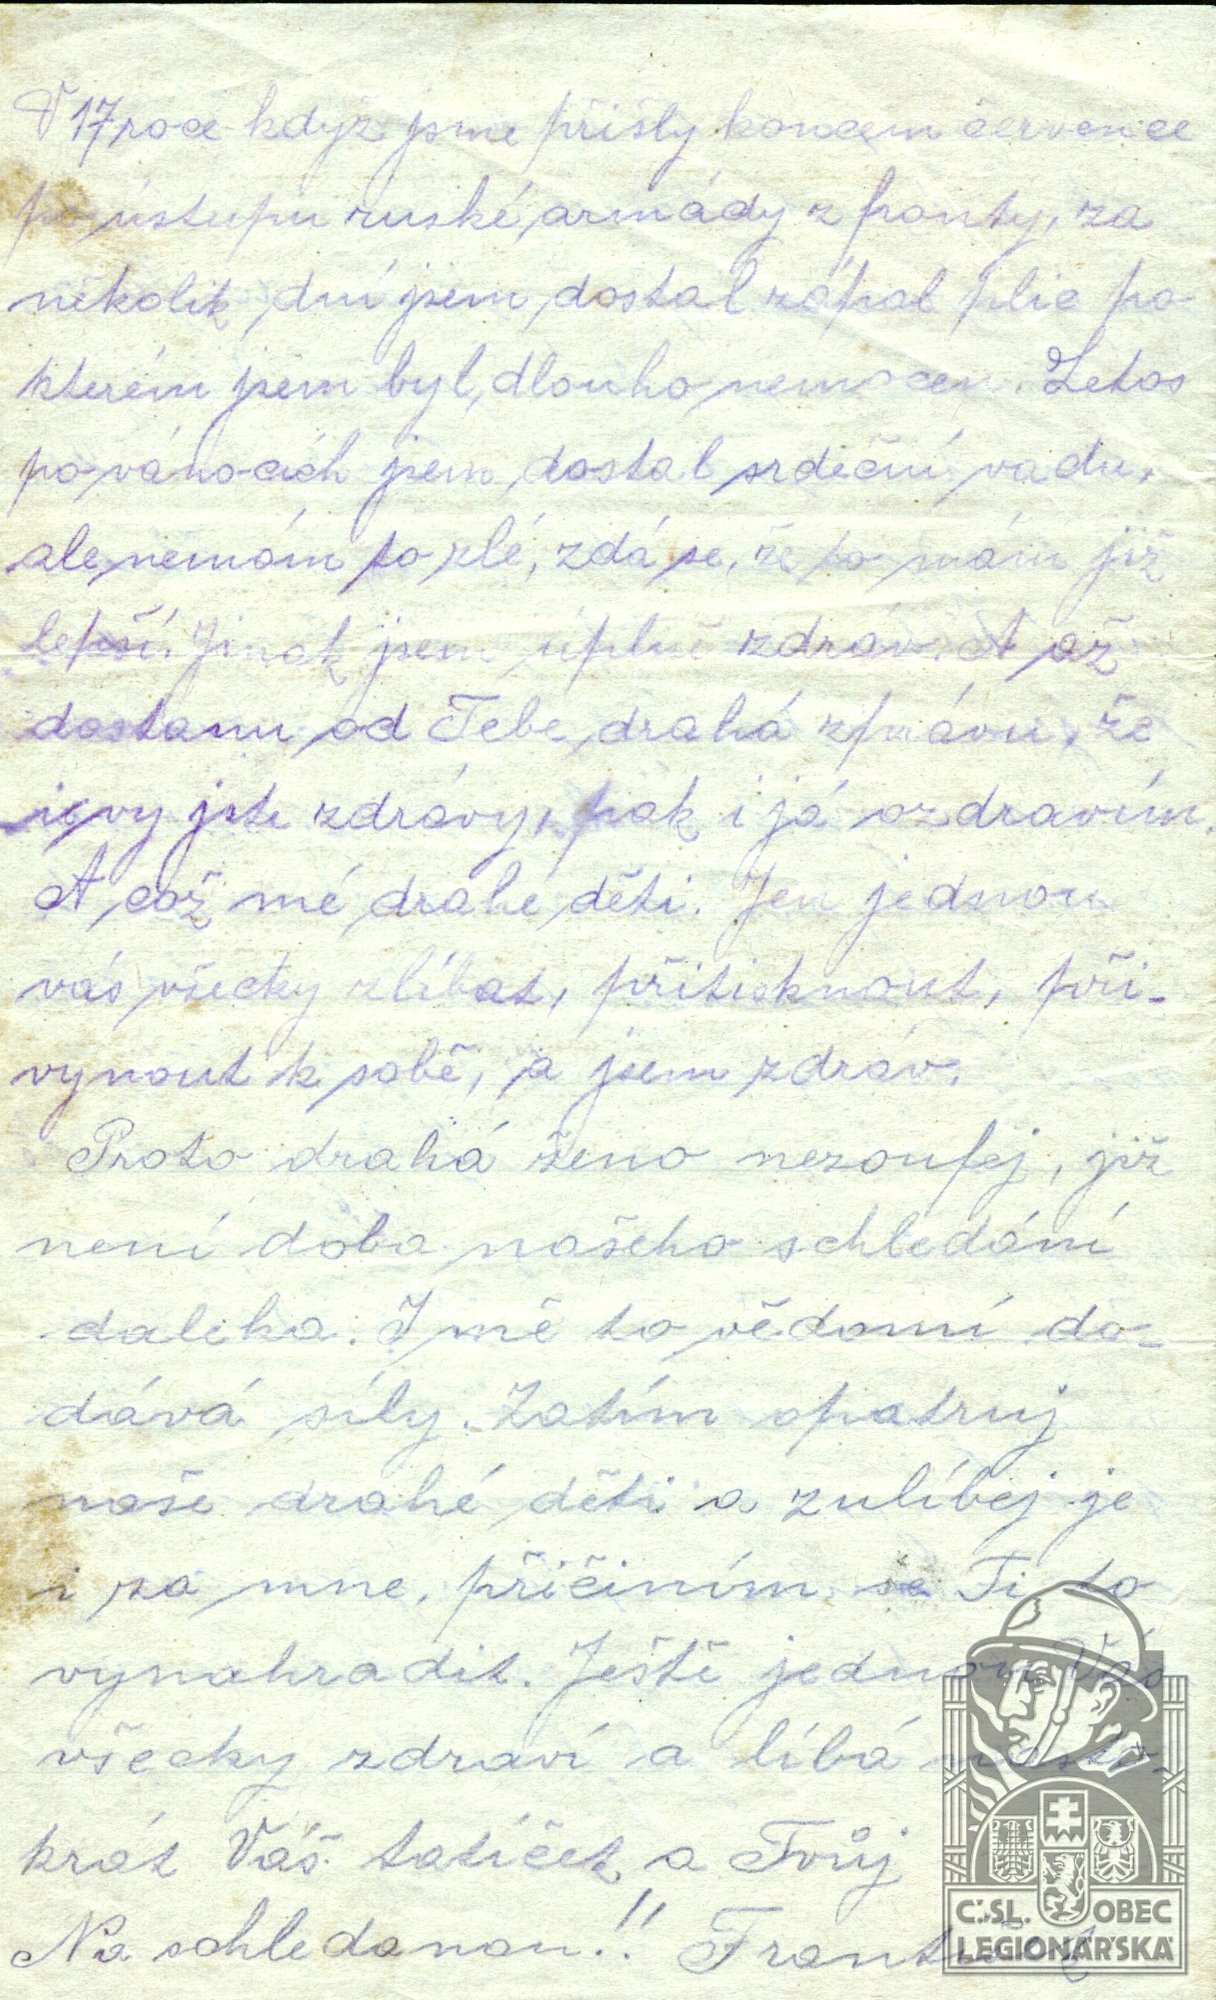 V 17 roce když jsme přišly koncem července
po ústupu ruské armády z fronty, za
několik dní jsem dostal zápal plic po
kterém jsem byl dlouho nemocen. Letos
po vánocích jsem dostal srdeční vadu,
ale nemám to zlé, zdá se, že to mám již
lepší. Jinak jsem úplně zdráv. A až
dostanu od Tebe drahá zprávu, že
i vy jste zdrávy, pak i já ozdravím.
A což mé drahé děti. Jen jednou
vás všecky zlíbat, přitisknout, při-
vynout k sobě, a jsem zdráv.
Proto drahá ženo nezoufej, již
není doba našeho schledání
daleka. I mě to vědomí do-
dává síly. Zatím opatruj
naše drahé děti a zulíbej je
i za mne, přičiním se Ti to
vynahradit. Ještě jednou Vás
všecky zdraví a líbá nasto-
krát Váš tatíček a Tvůj
Na schledanou!! František
Č.SL. OBEC
LEGIONÁŘSKÁ